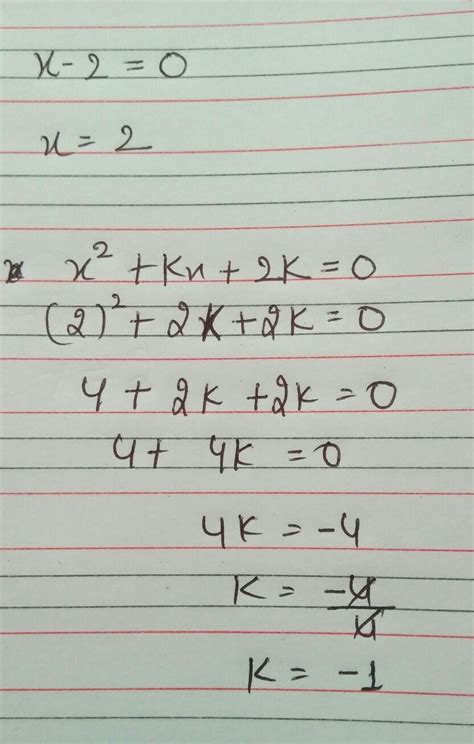 x - 2 = 0
x = 2
x² + Kx + 2K = 0
(2)² + 2K + 2K = 0
4 + 2K + 2K = 0
4 + 4K = 0
4K = -4
K = -4/4
K = -1